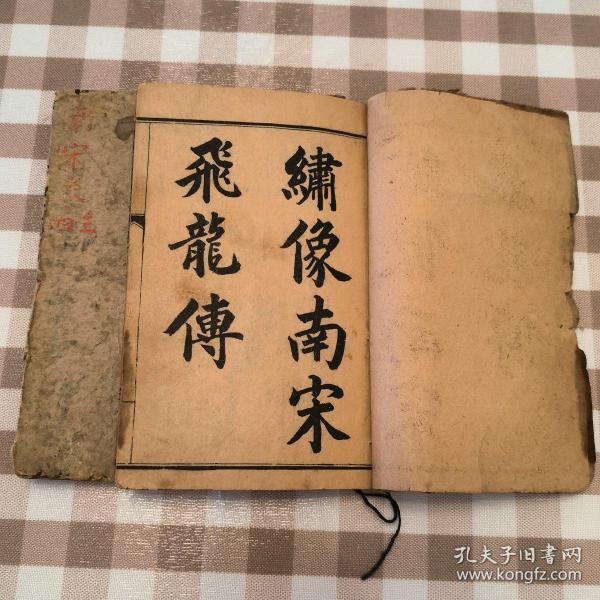 繡像南宋
飛龍傳
南宋
孔夫子旧書网
www.kongfz.com